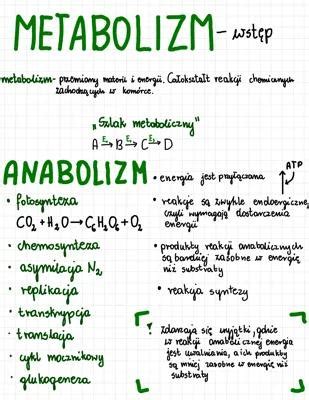 METABOLIZM - wstęp
metabolizm - przemiany materii i energii. Całokształt reakcji chemicznych
zachodzących w komórce.
„Szlak metaboliczny"
A E₁→ B E₂→ C E₃→ D
ANABOLIZM
• fotosynteza
CO₂ + H₂O → C₆H₁₂O₆ + O₂
• chemosynteza
• asymilacja N₂
• replikacja
• transkrypcja
• translacja
• cykl mocznikowy
• glukogeneza
• energia jest przyłączana
ATP
• reakcje są zwykle endoergiczne,
czyli wymagają dostarczenia
energii
• produkty reakcji anabolicznych
są bardziej zasobne w energię
niż substraty
• reakcja syntezy
! Zdarzają się wyjątki, gdzie
w reakcji anabolicznej energia
jest uwalniania, a ich produkty
są mniej zasobne w energię niż
substraty